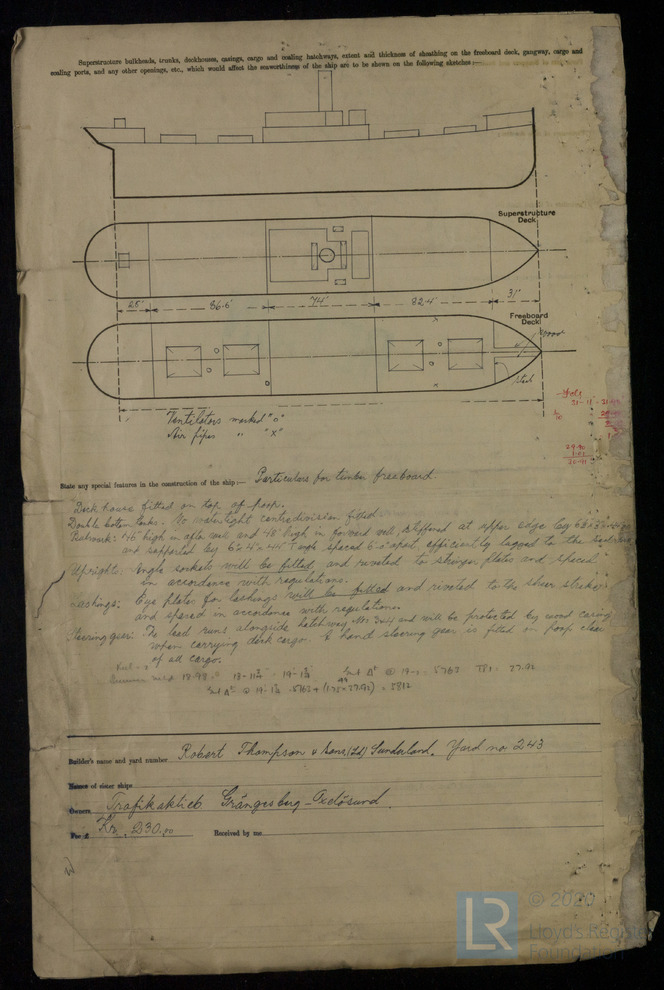 Superstructure bulkheads, trunks, deckhouses, casings, cargo and coaling hatchways, extent and thickness of sheathing on the freeboard deck, gangway, cargo and
coaling ports, and any other openings, etc., which would affect the seaworthiness of the ship are to be shown on the following sketches :—
Superstructure
Deck
25' 86.6' 74' 82.4' 31'
Freeboard
Deck
Ventilators marked "o"
Air pipes " "x"
State any special features in the construction of the ship :— Particulars for timber freeboard
Deck house fitted on top of poop.
Double bottom tanks. No watertight centredivision fitted
Bulwark: 46" high in after well and 48" high in forward well, stiffened at upper edge by
and supported by 6"x 4"x .44" T angle spaced 6'-0" apart efficiently lugged to the
Upright: Angle sockets will be fitted and riveted to stringer plates and spaced
in accordance with regulations.
Lashings: Eye plates for lashings will be fitted and riveted to the sheer strake
and spaced in accordance with regulations.
Steering gear: The lead runs alongside hatchway and will be protected by wood casing
when carrying deck cargo. A hand steering gear is fitted in poop clear
of all cargo.
Builder's name and yard number Robert Thompson & Sons (Ld) Sunderland. Yard no 243
Names of sister ships
Owners Trafikaktieb Grängesberg-Oxelösund.
Fee £ Kr. 230.00 Received by me
© 2020
Lloyd's Register
Foundation
LR